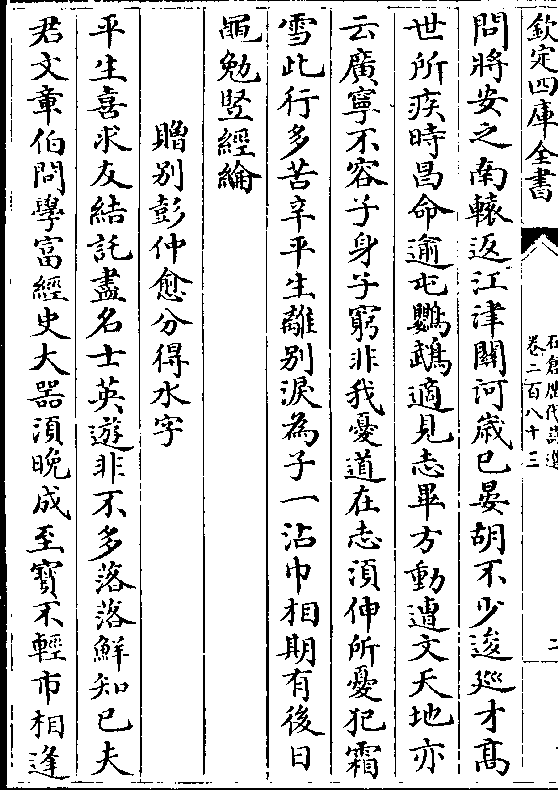 欽定四庫全書
石倉歷代詩選
卷二百八十三
二
問將安之南轅返江津關河歲已晏胡不少逡巡才髙
世所疾時昌命逾屯鸚鵡適見志畢方動遭文天地亦
云廣寧不容子身子窮非我憂道在志須伸所憂犯霜
雪此行多苦辛平生離别淚為子一沾巾相期有後日
黽勉竪經綸
贈别彭仲愈分得水字
平生喜求友結託盡名士英遊非不多落落鮮知已夫
君文章伯問學富經史大器須晚成至寳不輕市相逢